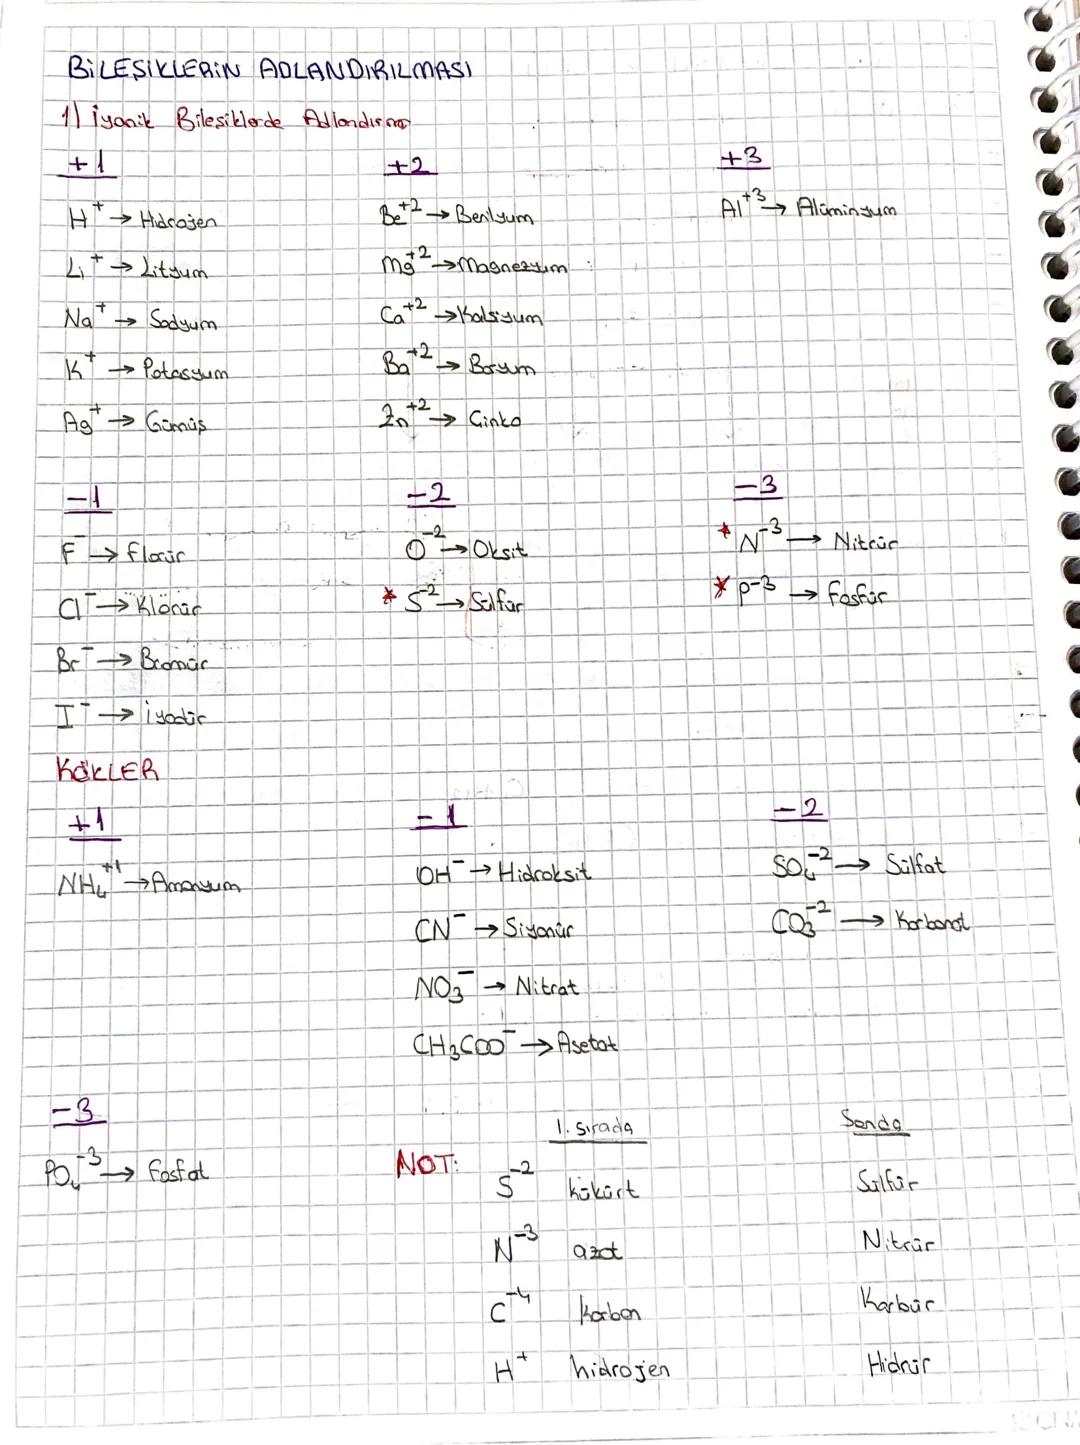 BİLEŞİKLERİN ADLANDIRILMASI
1) İyonik Bileşiklerde Adlandırma
+1 +2 +3
H⁺ → Hidrojen Be⁺² → Berilyum Al⁺³ → Alüminyum
Li⁺ → Lityum Mg⁺² → Magnezyum
Na⁺ → Sodyum Ca⁺² → Kalsiyum
K⁺ → Potasyum Ba⁺² → Baryum
Ag⁺ → Gümüş Zn⁺² → Çinko
-1 -2 -3
F⁻ → florür O⁻² → Oksit * N⁻³ → Nitrür
Cl⁻ → Klörür * S⁻² → Sülfür * P⁻³ → fosfür
Br⁻ → Bromür
I⁻ → İyodür
KÖKLER
+1 -1 -2
NH₄⁺¹ → Amonyum OH⁻ → Hidroksit SO₄⁻² → Sülfat
CN⁻ → Siyanür CO₃⁻² → Karbonat
NO₃⁻ → Nitrat
CH₃COO⁻ → Asetat
-3 1. sırada Sonda
PO₄⁻³ → fosfat NOT: S⁻² kükürt Sülfür
N⁻³ azot Nitrür
C⁻⁴ karbon Karbür
H⁺ hidrojen Hidrür